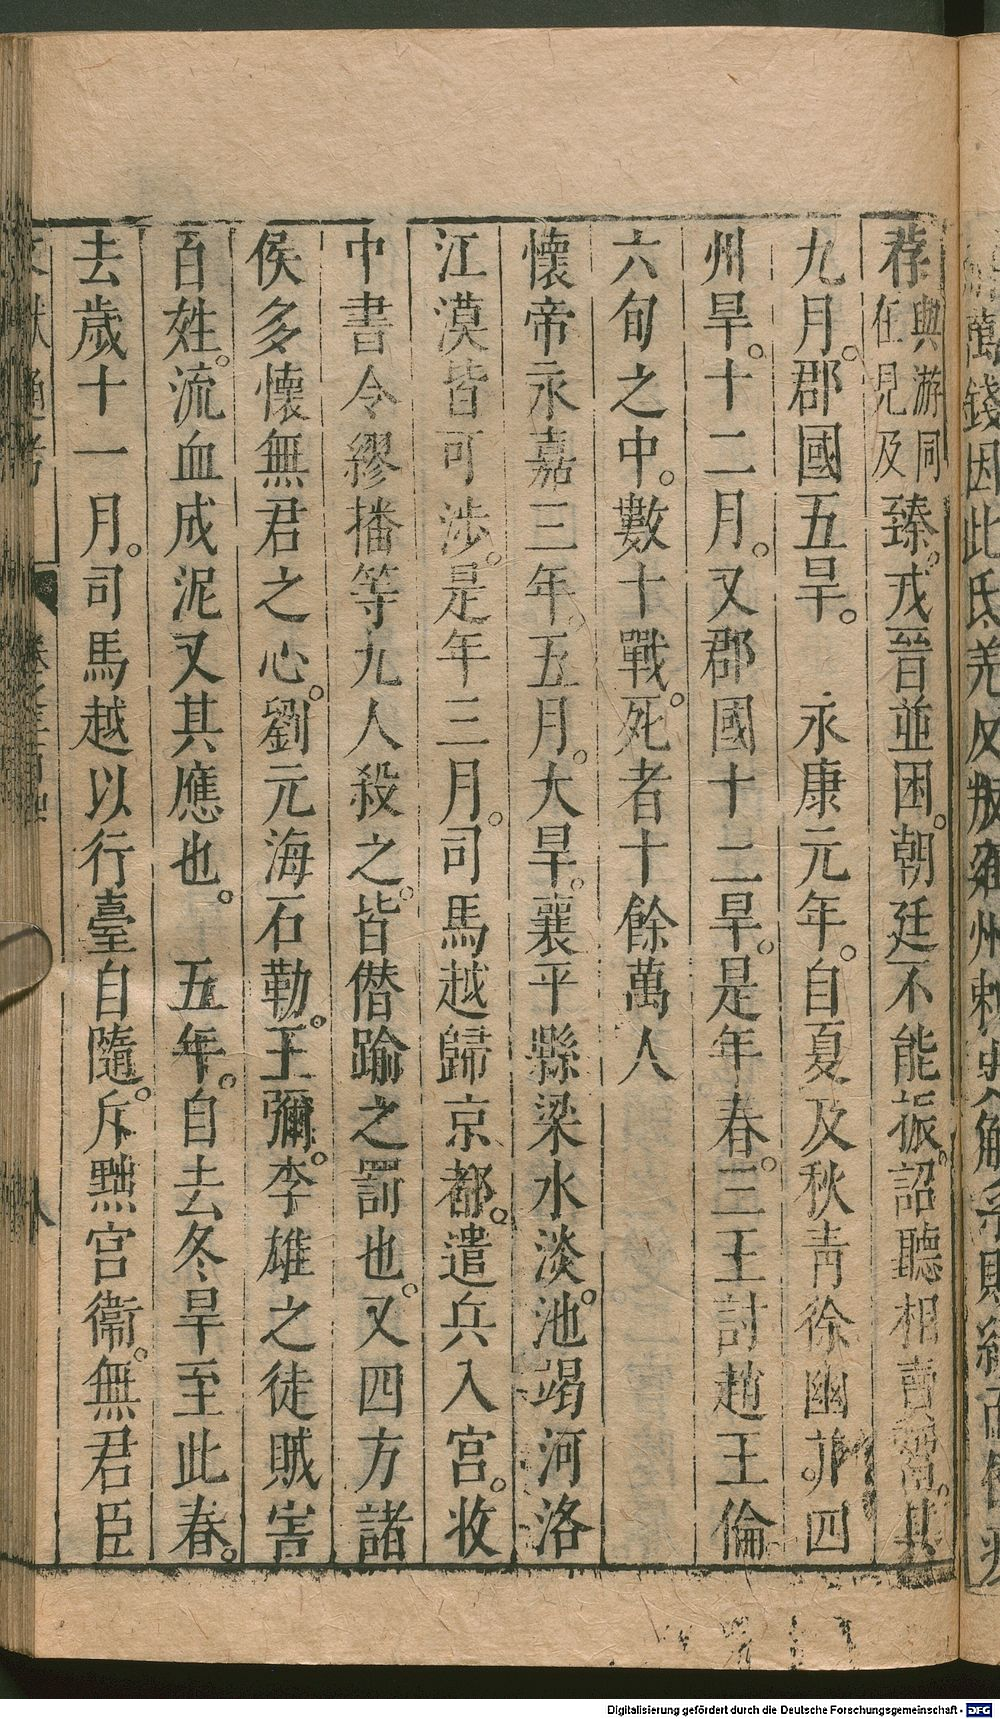 荐與游同在見及臻。戎晉並困。朝廷不能振。詔聽相賣鬻。其
九月。郡國五旱。　永康元年。自夏及秋青徐幽幷四
州旱。十二月。又郡國十二旱。是年春。三王討趙王倫
六旬之中。數十戰。死者十餘萬人
懷帝永嘉三年。五月。大旱。襄平縣梁水淡。池竭河洛
江漠皆可涉。是年三月。司馬越歸京都。遣兵入宮。收
中書令繆播等九人殺之。皆僭踰之罰也。又四方諸
侯多懷無君之心。劉元海石勒。王彌。李雄之徒賊害
百姓。流血成泥又其應也。　五年。自去冬旱至此春。
去歲十一月。司馬越以行臺自隨。斥黜宮衞。無君臣
Digitalisierung gefördert durch die Deutsche Forschungsgemeinschaft - DFG